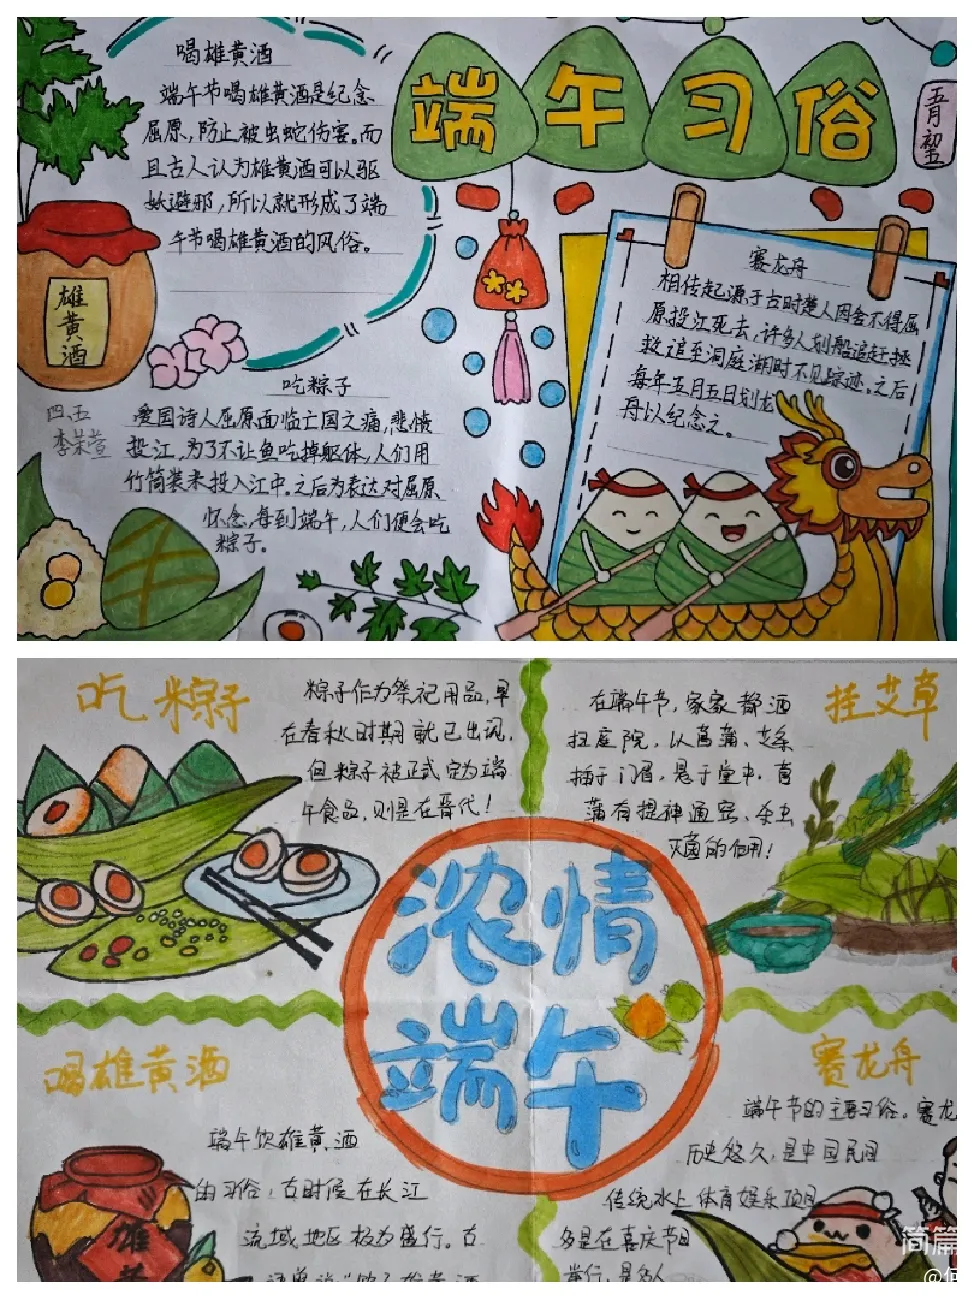 喝雄黄酒
端午节喝雄黄酒是纪念
屈原，防止被虫蛇伤害。而
且古人认为雄黄酒可以驱
妖避邪，所以就形成了端
午节喝雄黄酒的风俗。
端午习俗
五月初五
雄黄酒
赛龙舟
相传起源于古时楚人因舍不得屈
原投江死去，许多人划船追赶拯
救追至洞庭湖时不见踪迹。之后
每年五月五日划龙
舟以纪念之。
吃粽子
四五
爱国诗人屈原面临亡国之痛，悲愤
投江，为了不让鱼吃掉躯体，人们用
竹筒装米投入江中。之后为表达对屈原
怀念，每到端午，人们便会吃
粽子。
吃粽子
粽子作为祭祀用品，早
在春秋时期就已出现，
但粽子被正式定为端
午食品，则是在晋代！
挂艾草
在端午节，家家都洒
扫庭院，以菖蒲、艾条
插于门眉，悬于堂中，菖
蒲有提神通窍、杀虫
灭菌的作用！
浓情
端午
喝雄黄酒
端午饮雄黄酒
的习俗，古时候在长江
流域地区极为盛行。古
雄
赛龙舟
端午节的主要习俗。赛龙
历史悠久，是中国民间
传统水上体育娱乐项目
多是在喜庆节日
举行，是多人
简篇